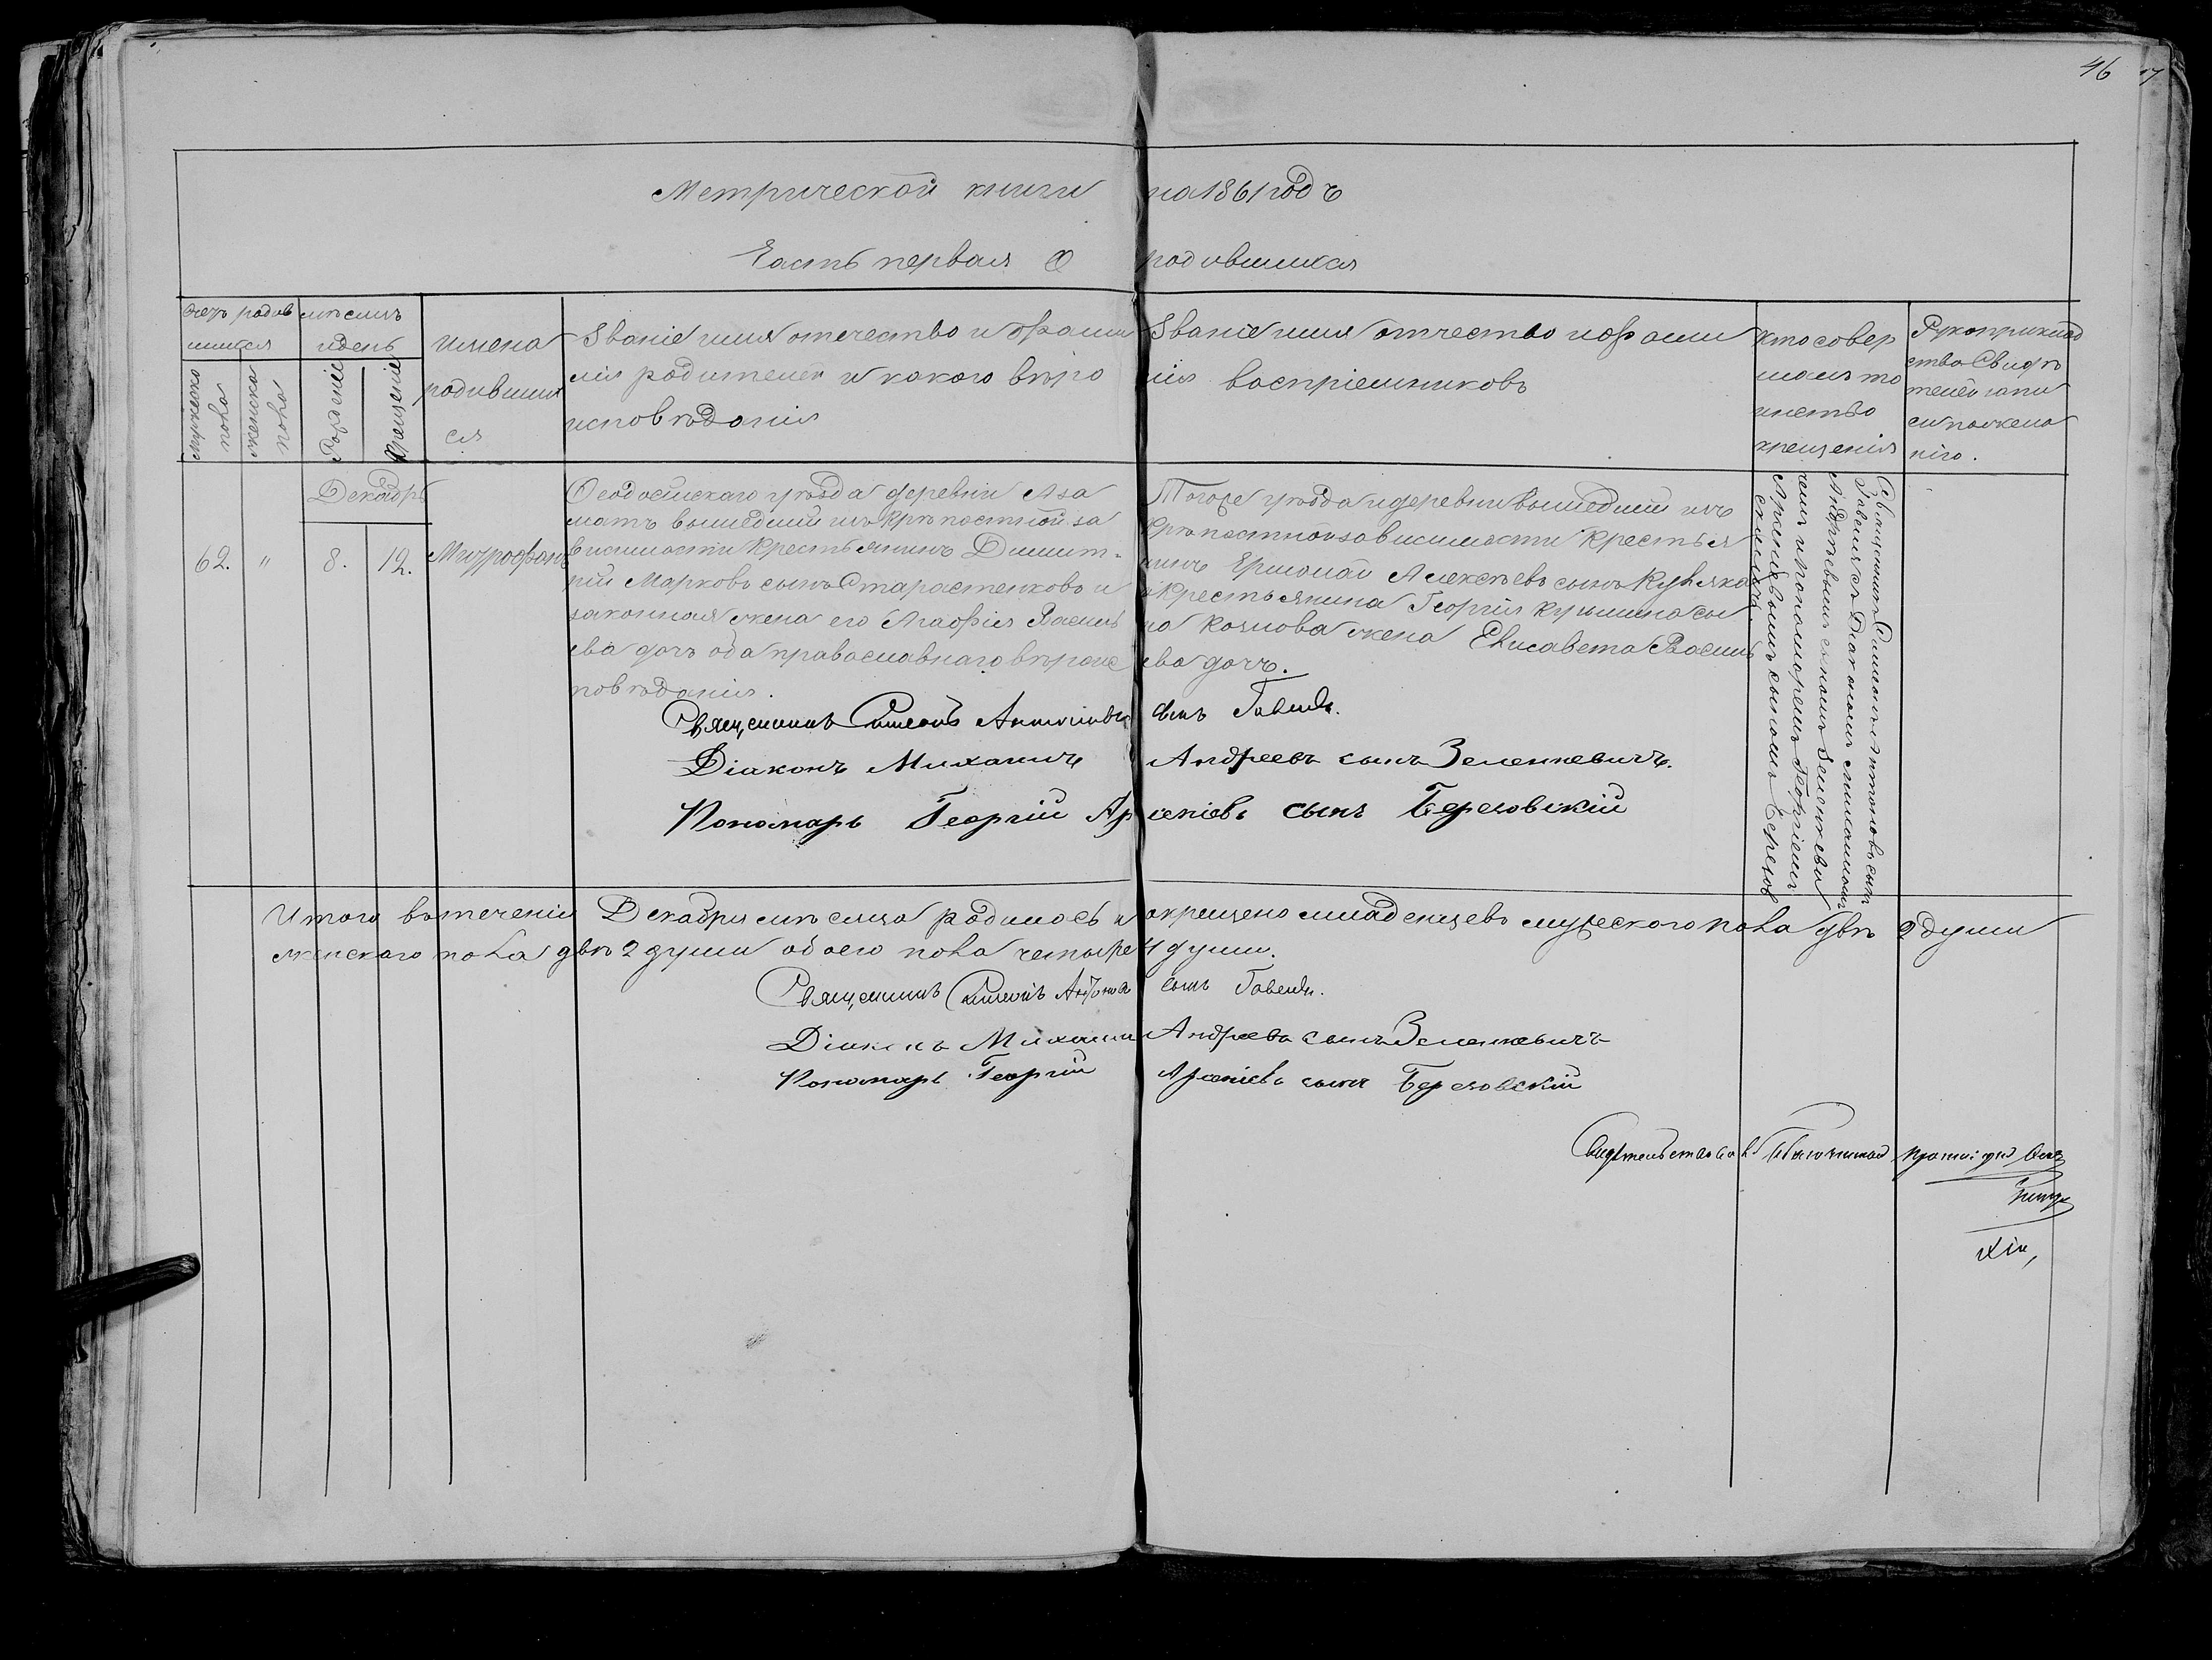 46
Метрической книги на 1861 годъ
Часть первая О родившихся
Счетъ родив
шихся
мѣсяцъ
и день
Мужеско
пола
женска
пола
Рожденіе
Крещеніе
имена
родивших
ся
Званіе имя отечество и фами
лія родителей и какого вѣро
исповѣданія
Званіе имя отчество и фами
лія воспріемниковъ
кто совер
шалъ та
инство
крещенія
Рукоприклад
ство Свидѣ
телей запи
си по жела
нію.
Декабрь
62. " 8. 12. Митрофанъ
Ѳеодосійскаго уѣзда деревни Аза
матъ вышедшій изъ крѣпостной за
висимости Крестьянинъ Димит-
рій Марковъ сынъ Старастенковъ и
законная жена его Агафія Василь
ева дочъ оба православнаго вѣроис
повѣданія.
Тогоже уѣзда и деревни вышедшій изъ
крѣпостной зависимости Крестья
нинъ Ермолай Алексѣевъ сынъ
и Крестьянина Георгія Кузьмина сы
на жена Елисавета Василь
ева дочъ.
Священникъ Симеонъ Антоновъ сынъ
Гавеля съ Діакономъ Михаиломъ
Андрѣевымъ сыномъ Зеленкеви
чемъ и пономаремъ Георгіемъ
Арсеніевымъ сыномъ Березов
скимъ
Священникъ Симеонъ Антоновъ сынъ
Діаконъ Михаилъ Андреевъ сынъ Зеленкевичъ.
Пономарь Георгій Арсеніевъ сынъ Березовскій
Итого въ теченіи Декабря мѣсяца родилось и окрещено младенцевъ мужескаго пола двѣ 2 души
женскаго пола двѣ 2 души обоего пола четыре 4 души.
Священникъ Симеонъ Антоновъ сынъ
Діаконъ Михаилъ Андреевъ сынъ Зеленкевичъ
Пономарь Георгій Арсеніевъ сынъ Березовскій